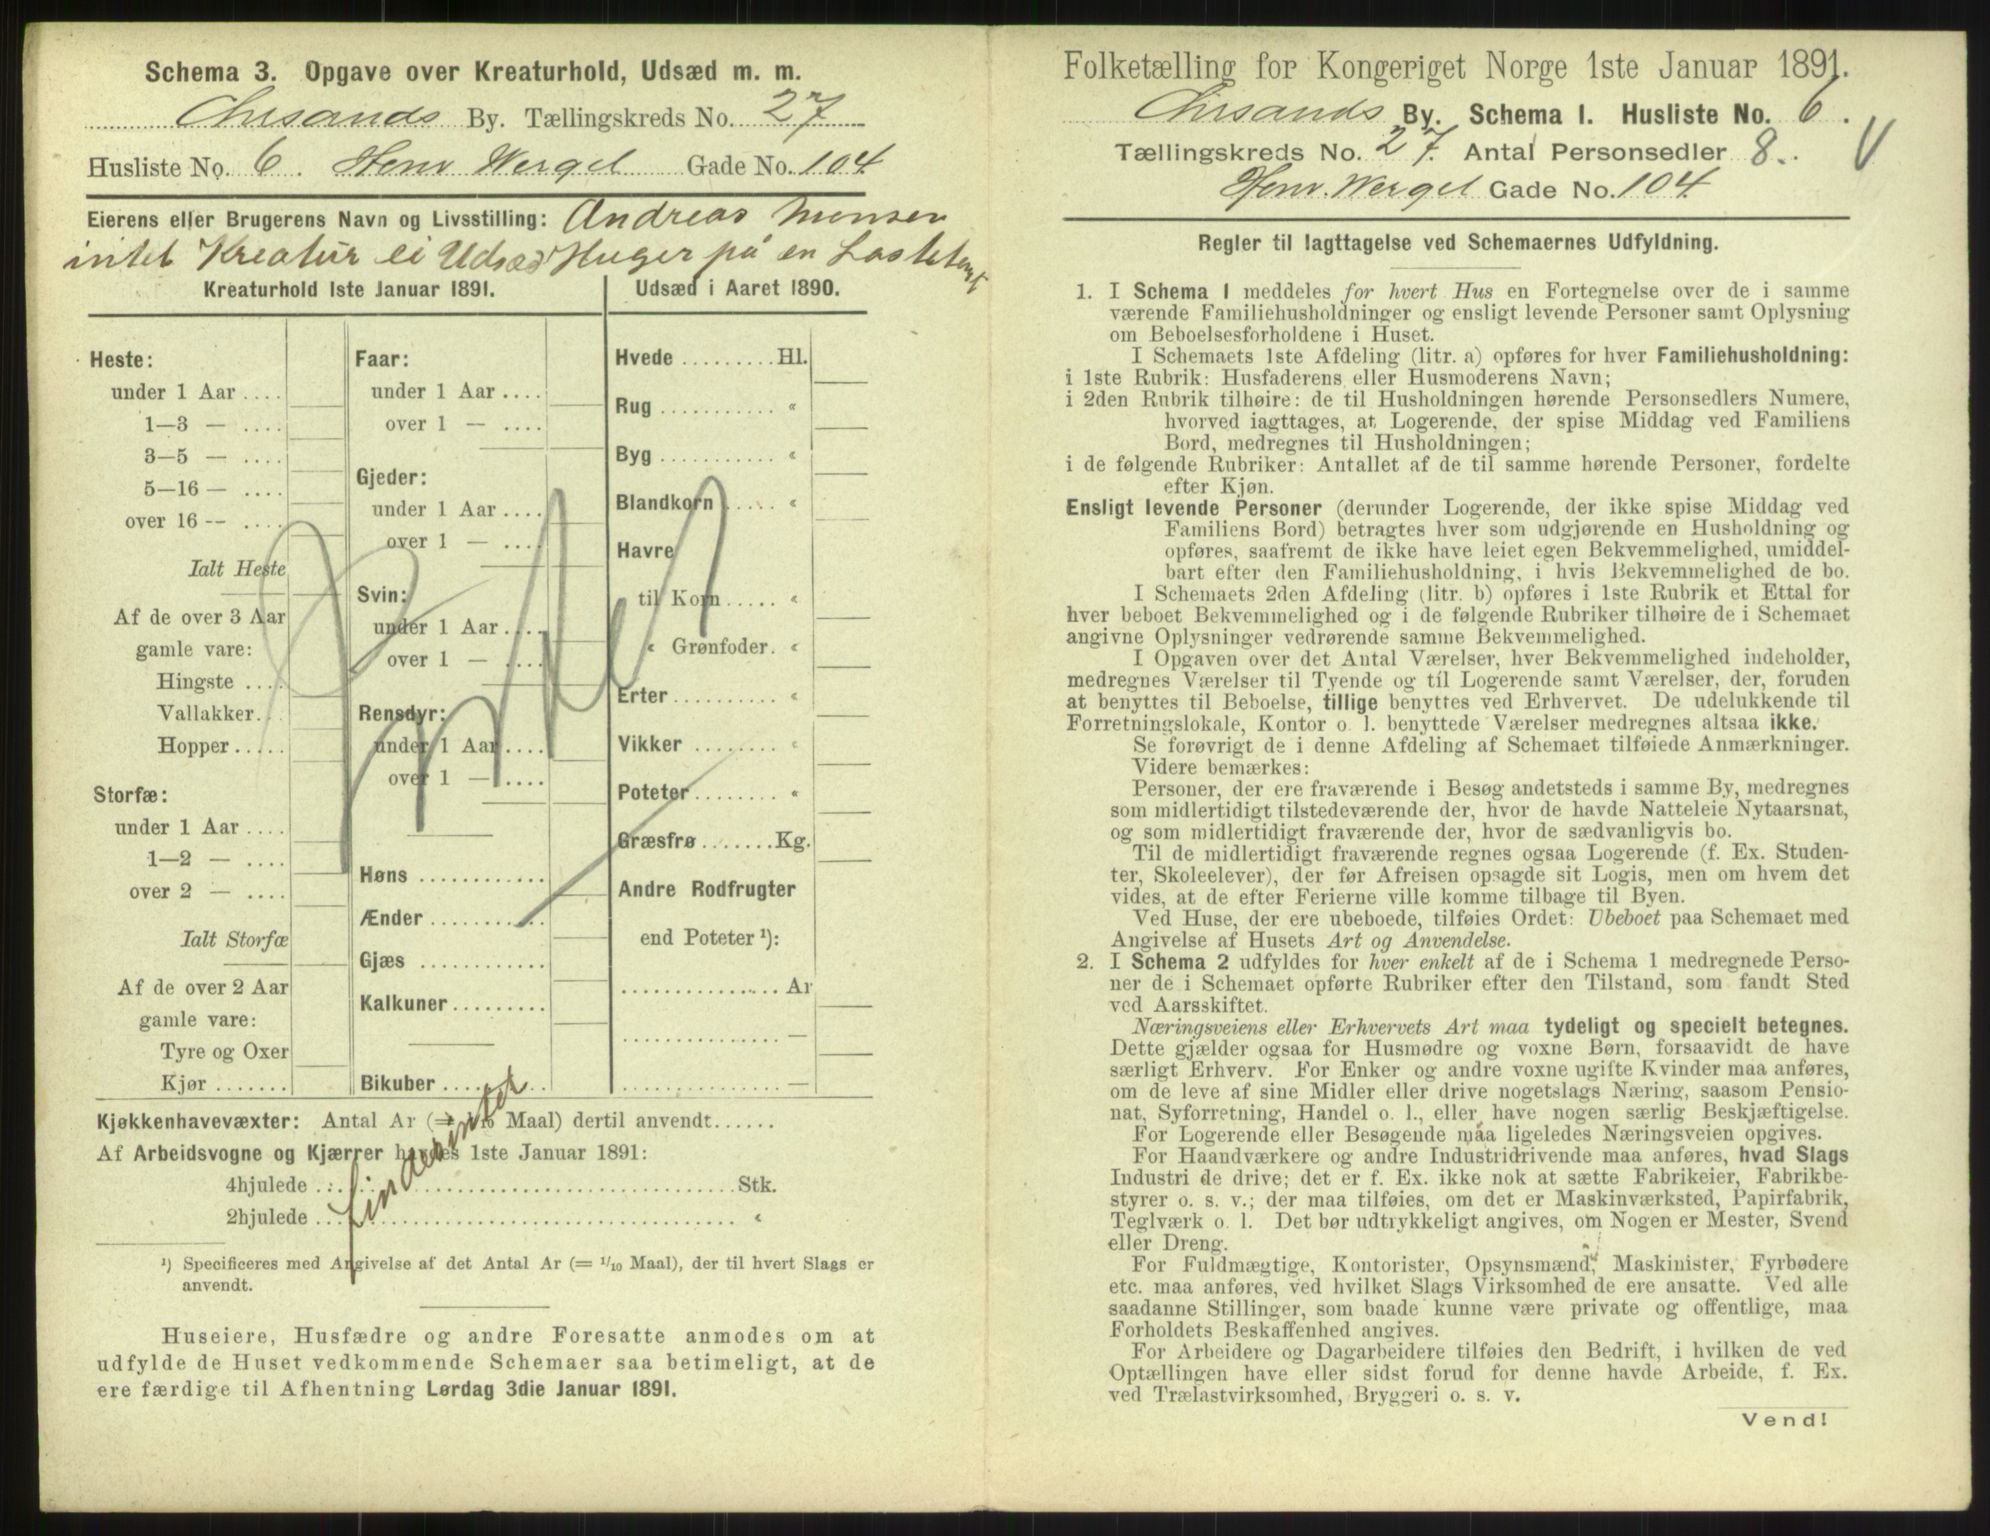 Schema 3. Opgave over Kreaturhold, Udsæd m. m.
Chrsands By. Tællingskreds No. 27
Husliste No. 6. Henr Wergel Gade No. 104
Eierens eller Brugerens Navn og Livsstilling: Andreas Monsen
intet Kreatur ei Udsæd Huger på en Lastetomt
Kreaturhold 1ste Januar 1891.
Heste:
under 1 Aar ....
1—3 — ....
3—5 — ....
5—16 — ....
over 16 -- ....
Ialt Heste
Af de over 3 Aar
gamle vare:
Hingste ....
Vallakker...
Hopper .....
Storfæ:
under 1 Aar ....
1—2 — ....
over 2 — ....
Ialt Storfæ
Af de over 2 Aar
gamle vare:
Tyre og Oxer
Kjør .......
Faar:
under 1 Aar ....
over 1 — ....
Gjeder:
under 1 Aar ....
over 1 — ....
Svin:
under 1 Aar ....
over 1 — ....
Rensdyr:
under 1 Aar ....
over 1 — ....
Høns ............
Ænder ...........
Gjæs ............
Kalkuner.........
Bikuber .........
Udsæd i Aaret 1890.
Hvede .........Hl.
Rug ........... «
Byg ........... «
Blandkorn ..... «
Havre
til Korn ..... «
« Grønfoder. «
Erter ......... «
Vikker ........ «
Poteter........ «
Græsfrø .......Kg.
Andre Rodfrugter
end Poteter ¹):
............... Ar
............... —
............... —
Kjøkkenhavevæxter: Antal Ar (= 1/10 Maal) dertil anvendt......
Af Arbeidsvogne og Kjærrer havdes 1ste Januar 1891:
4hjulede ........................................Stk.
2hjulede ........................................ «
¹) Specificeres med Angivelse af det Antal Ar (= 1/10 Maal), der til hvert Slags er
anvendt.
Huseiere, Husfædre og andre Foresatte anmodes om at
udfylde de Huset vedkommende Schemaer saa betimeligt, at de
ere færdige til Afhentning Lørdag 3die Januar 1891.
Folketælling for Kongeriget Norge 1ste Januar 1891.
Chrsands By. Schema I. Husliste No. 6.
Tællingskreds No. 27. Antal Personsedler 8.
Henr. Wergel Gade No. 104
Regler til Iagttagelse ved Schemaernes Udfyldning.
1. I Schema 1 meddeles for hvert Hus en Fortegnelse over de i samme
værende Familiehusholdninger og ensligt levende Personer samt Oplysning
om Beboelsesforholdene i Huset.
I Schemaets 1ste Afdeling (litr. a) opføres for hver Familiehusholdning:
i 1ste Rubrik: Husfaderens eller Husmoderens Navn;
i 2den Rubrik tilhøire: de til Husholdningen hørende Personsedlers Numere,
hvorved iagttages, at Logerende, der spise Middag ved Familiens
Bord, medregnes til Husholdningen;
i de følgende Rubriker: Antallet af de til samme hørende Personer, fordelte
efter Kjøn.
Ensligt levende Personer (derunder Logerende, der ikke spise Middag ved
Familiens Bord) betragtes hver som udgjørende en Husholdning og
opføres, saafremt de ikke have leiet egen Bekvemmelighed, umiddel-
bart efter den Familiehusholdning, i hvis Bekvemmelighed de bo.
I Schemaets 2den Afdeling (litr. b) opføres i 1ste Rubrik et Ettal for
hver beboet Bekvemmelighed og i de følgende Rubriker tilhøire de i Schemaet
angivne Oplysninger vedrørende samme Bekvemmelighed.
I Opgaven over det Antal Værelser, hver Bekvemmelighed indeholder,
medregnes Værelser til Tyende og til Logerende samt Værelser, der, foruden
at benyttes til Beboelse, tillige benyttes ved Erhvervet. De udelukkende til
Forretningslokale, Kontor o. l. benyttede Værelser medregnes altsaa ikke.
Se forøvrigt de i denne Afdeling af Schemaet tilføiede Anmærkninger.
Videre bemærkes:
Personer, der ere fraværende i Besøg andetsteds i samme By, medregnes
som midlertidigt tilstedeværende der, hvor de havde Natteleie Nytaarsnat,
og som midlertidigt fraværende der, hvor de sædvanligvis bo.
Til de midlertidigt fraværende regnes ogsaa Logerende (f. Ex. Studen-
ter, Skoleelever), der før Afreisen opsagde sit Logis, men om hvem det
vides, at de efter Ferierne ville komme tilbage til Byen.
Ved Huse, der ere ubeboede, tilføies Ordet: Ubeboet paa Schemaet med
Angivelse af Husets Art og Anvendelse.
2. I Schema 2 udfyldes for hver enkelt af de i Schema 1 medregnede Perso-
ner de i Schemaet opførte Rubriker efter den Tilstand, som fandt Sted
ved Aarsskiftet.
Næringsveiens eller Erhvervets Art maa tydeligt og specielt betegnes.
Dette gjælder ogsaa for Husmødre og voxne Børn, forsaavidt de have
særligt Erhverv. For Enker og andre voxne ugifte Kvinder maa anføres,
om de leve af sine Midler eller drive nogetslags Næring, saasom Pensio-
nat, Syforretning, Handel o. l., eller have nogen særlig Beskjæftigelse.
For Logerende eller Besøgende maa ligeledes Næringsveien opgives.
For Haandværkere og andre Industridrivende maa anføres, hvad Slags
Industri de drive; det er f. Ex. ikke nok at sætte Fabrikeier, Fabrikbe-
styrer o. s. v.; der maa tilføies, om det er Maskinværksted, Papirfabrik,
Teglværk o. l. Det bør udtrykkeligt angives, om Nogen er Mester, Svend
eller Dreng.
For Fuldmægtige, Kontorister, Opsynsmænd, Maskinister, Fyrbødere
etc. maa anføres, ved hvilket Slags Virksomhed de ere ansatte. Ved alle
saadanne Stillinger, som baade kunne være private og offentlige, maa
Forholdets Beskaffenhed angives.
For Arbeidere og Dagarbeidere tilføies den Bedrift, i hvilken de ved
Optællingen have eller sidst forud for denne havde Arbeide, f. Ex.
ved Trælastvirksomhed, Bryggeri o. s. v.
Vend!